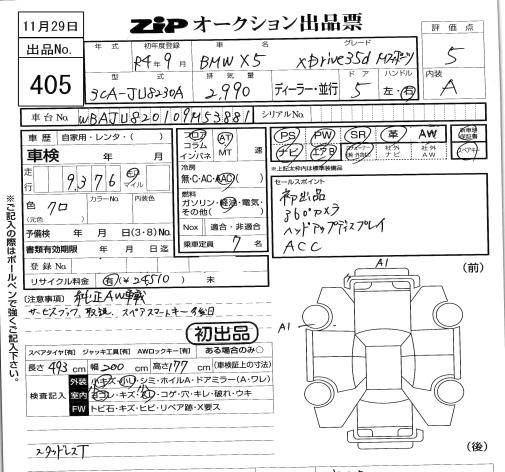 11月29日
ZIP オークション出品票
出品No.
405
評価点
5
内装
A
年式 初年度登録 車名 グレード
R4年9月 BMW X5 xDrive35d Mスポーツ
型式 排気量 ディーラー・並行 ドア ハンドル
3CA-JU8230A 2,990 5 左・右
車台No. WBAJU820109M53881 シリアルNo.
車歴 自家用・レンタ・( )
車検 年 月
走行 9,376 km マイル
色 クロ (元色) カラーNo. 内装色
予備検 年 月 日(3・8)No.
書類有効期限 年 月 日迄
登録No.
リサイクル料金 有(¥24,510) 未
フロア コラム インパネ AT MT 速
冷房
無・C・AC・AAC
燃料
ガソリン・軽油・電気・その他( )
Nox 適合・非適合
乗車定員 7 名
PS PW SR 革 AW 新車時保証書
ナビ エアB 社外ナビ 社外AW
※上記太枠内は標準装備品
セールスポイント
初出品
360°カメラ
ヘッドアップディスプレイ
ACC
(注意事項) 純正AW車載
サービスブック、取説、スペアスマートキー後日
初出品
スペアタイヤ[有] ジャッキ工具[有] AWロックキー[有] ある場合のみ○
長さ 493 cm 幅 200 cm 高さ 177 cm (車検証上の寸法)
検査記入
外装 小キズ・小凹・シミ・ホイルA・ドアミラー(A・ワレ)
室内 ヨゴレ・キズ・スレ・コゲ・穴・キレ・破れ・ウキ
FW トビ石・キズ・ヒビ・リペア跡・X要ス
スタッドレスT
A1
(前)
A1
(後)
※ご記入の際はボールペンで強くご記入下さい。